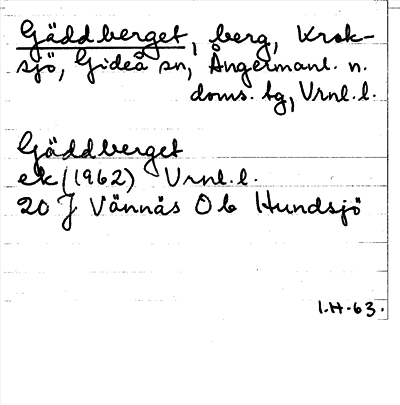 Gäddberget, berg, Krok-
sjö, Gideå sn, Ångermanl. n.
doms. bg, Vrnl. l.
Gäddberget
ek (1962) Vrnl. l.
20 J Vännäs O b Hundsjö
I.H-63.